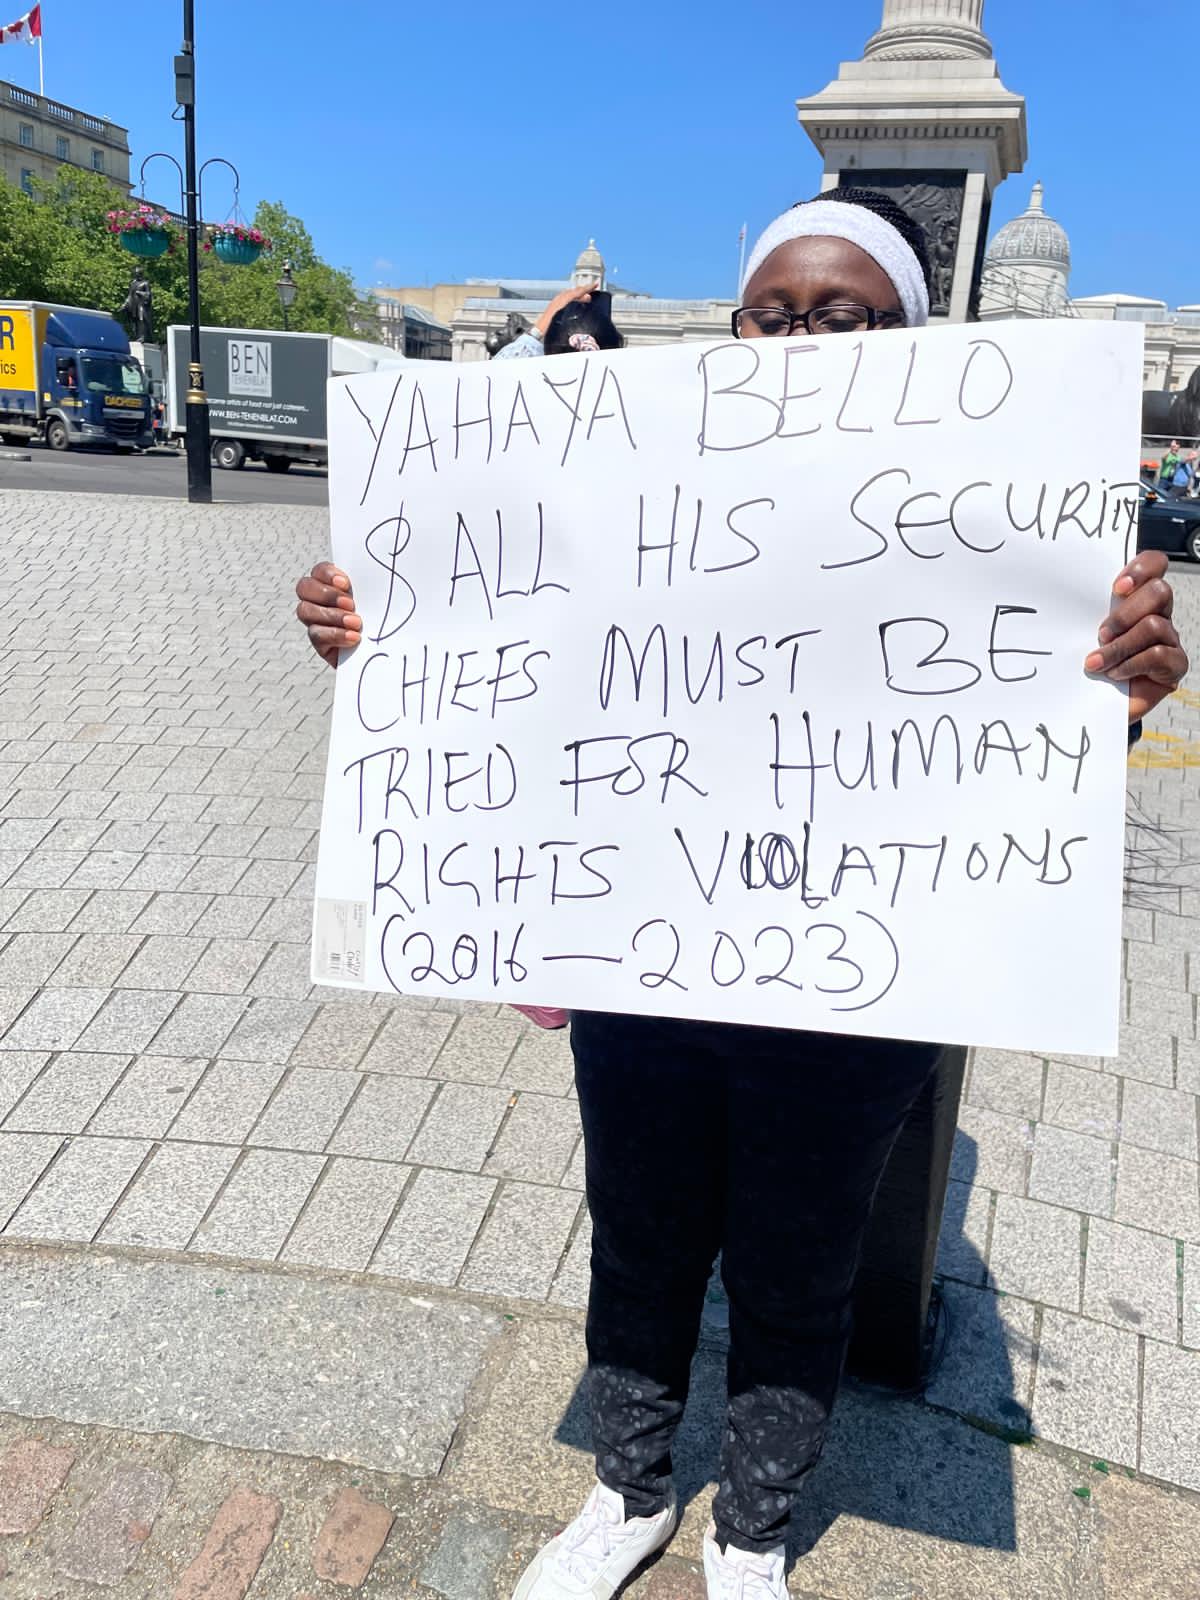 YAHAYA BELLO
& ALL HIS SECURITY
CHIEFS MUST BE
TRIED FOR HUMAN
RIGHTS VIOLATIONS
(2016—2023)
BEN
TENENBLAT
WWW.BEN-TENENBLAT.COM
DACHSER
R
ics